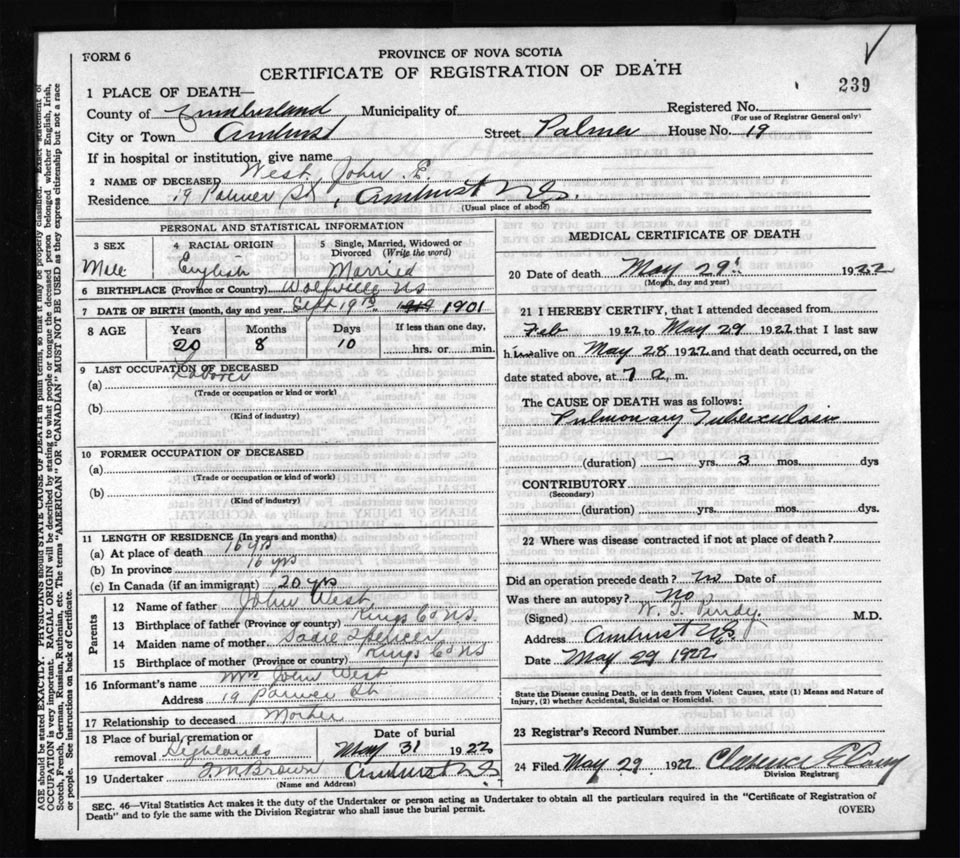 FORM 6
PROVINCE OF NOVA SCOTIA
CERTIFICATE OF REGISTRATION OF DEATH
239
1 PLACE OF DEATH—
County of Cumberland Municipality of Registered No.
(For use of Registrar General only)
City or Town Amherst Street Palmer House No. 19
If in hospital or institution, give name
2 NAME OF DECEASED West, John E.
Residence 19 Palmer St, Amherst N.S.
(Usual place of abode)
PERSONAL AND STATISTICAL INFORMATION
3 SEX Male
4 RACIAL ORIGIN English
5 Single, Married, Widowed or Divorced (Write the word) Married
6 BIRTHPLACE (Province or Country) Wolfville NS
7 DATE OF BIRTH (month, day and year) Sept 19th 1901
8 AGE Years Months Days If less than one day,
20 8 10 hrs. or min.
9 LAST OCCUPATION OF DECEASED
Laborer
(a)
(Trade or occupation or kind or work)
(b)
(Kind of industry)
10 FORMER OCCUPATION OF DECEASED
(a)
(Trade or occupation or kind or work)
(b)
(Kind of industry)
11 LENGTH OF RESIDENCE (In years and months)
(a) At place of death 16 yrs
(b) In province 16 yrs
(c) In Canada (if an immigrant) 20 yrs
Parents
12 Name of father John West
13 Birthplace of father (Province or country) Kings Co NS.
14 Maiden name of mother Sadie Spencer
15 Birthplace of mother (Province or country) Kings Co NS
16 Informant's name Mrs John West
Address 19 Palmer St.
17 Relationship to deceased Mother
18 Place of burial, cremation or removal Highlands
Date of burial
May 31 1922
19 Undertaker Brown Amherst N.S.
(Name and Address)
MEDICAL CERTIFICATE OF DEATH
20 Date of death May 29th 1922
(Month, day and year)
21 I HEREBY CERTIFY, that I attended deceased from
Feb 1922 to May 29 1922 that I last saw
him alive on May 28 1922 and that death occurred, on the
date stated above, at 7 a. m.
The CAUSE OF DEATH was as follows:
Pulmonary Tuberculosis
(duration) — yrs. 3 mos. dys
CONTRIBUTORY
(Secondary)
(duration) yrs. mos. dys.
22 Where was disease contracted if not at place of death?
Did an operation precede death? no Date of
Was there an autopsy? no
(Signed) W. T. Purdy M.D.
Address Amherst N.S.
Date May 29 1922
State the Disease causing Death, or in death from Violent Causes, state (1) Means and Nature of
Injury, (2) whether Accidental, Suicidal or Homicidal.
23 Registrar's Record Number
24 Filed May 29 1922 Clarence
Division Registrar
SEC. 46—Vital Statistics Act makes it the duty of the Undertaker or person acting as Undertaker to obtain all the particulars required in the "Certificate of Registration of
Death" and to fyle the same with the Division Registrar who shall issue the burial permit.
(OVER)
AGE should be stated EXACTLY. PHYSICIANS should STATE CAUSE OF DEATH in plain terms, so that it may be properly classified. Exact statement of
OCCUPATION is very important. RACIAL ORIGIN will be described by stating to what people or tongue the deceased person belonged, whether English, Irish,
Scotch, French, German, Russian, Ruthenian, etc. The terms "AMERICAN" OR "CANADIAN" MUST NOT BE USED as they express citizenship but not a race
or people. See instructions on back of Certificate.